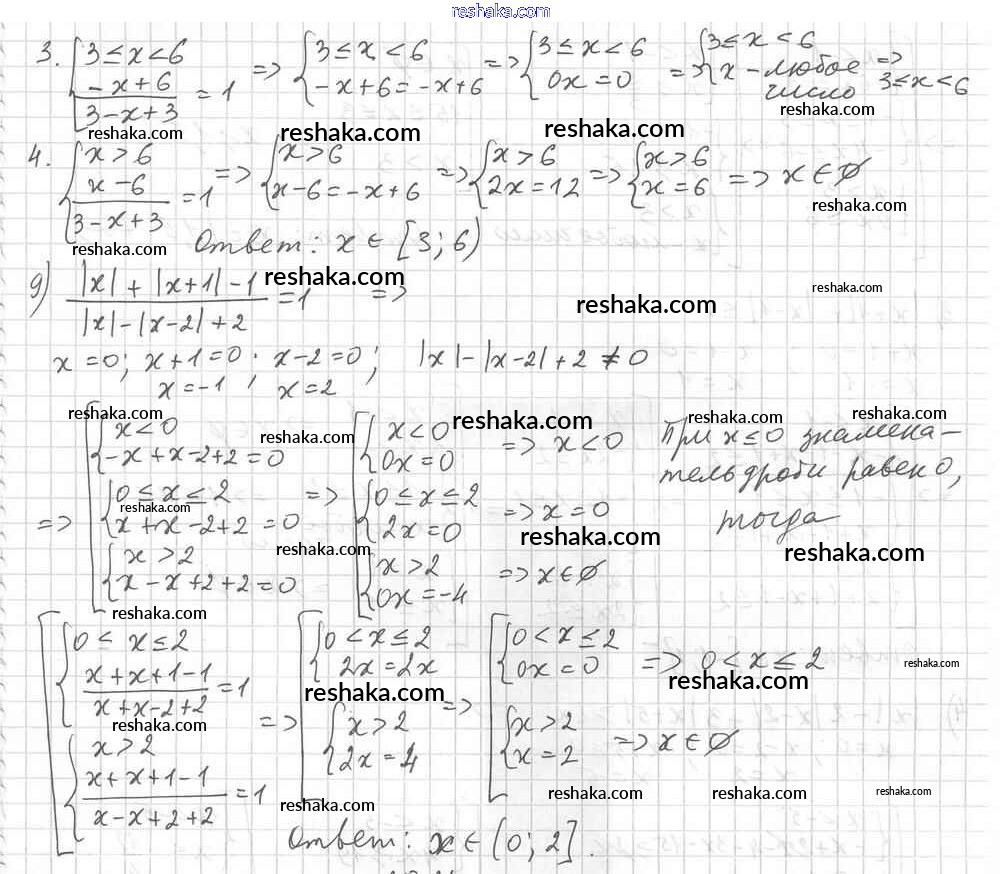 reshaka.com
3. { 3 ≤ x < 6 ; (-x+6)/(3-x+3) = 1 => { 3 ≤ x < 6 ; -x+6 = -x+6 => { 3 ≤ x < 6 ; 0x = 0 => { 3 ≤ x < 6 ; x - любое число => 3 ≤ x < 6
reshaka.com reshaka.com reshaka.com reshaka.com
4. { x > 6 ; (x-6)/(3-x+3) = 1 => { x > 6 ; x-6 = -x+6 => { x > 6 ; 2x = 12 => { x > 6 ; x = 6 => x ∈ ∅
reshaka.com reshaka.com
Ответ: x ∈ [3; 6)
g) (|x| + |x+1| - 1)/(|x| - |x-2| + 2) = 1 =>
reshaka.com reshaka.com reshaka.com
x = 0; x+1 = 0; x-2 = 0; |x| - |x-2| + 2 ≠ 0
x = -1; x = 2
reshaka.com reshaka.com reshaka.com reshaka.com reshaka.com
=> [ { x < 0 ; -x+x-2+2 = 0
{ 0 ≤ x ≤ 2 ; x+x-2+2 = 0
{ x > 2 ; x-x+2+2 = 0
=> [ { x < 0 ; 0x = 0 => x < 0
{ 0 ≤ x ≤ 2 ; 2x = 0 => x = 0
{ x > 2 ; 0x = -4 => x ∈ ∅
При x ≤ 0 знамена-
тель дроби равен 0,
тогда
reshaka.com reshaka.com reshaka.com reshaka.com reshaka.com
[ { 0 < x ≤ 2 ; (x+x+1-1)/(x+x-2+2) = 1
{ x > 2 ; (x+x+1-1)/(x-x+2+2) = 1
=> [ { 0 < x ≤ 2 ; 2x = 2x
{ x > 2 ; 2x = 4
=> [ { 0 < x ≤ 2 ; 0x = 0 => 0 < x ≤ 2
{ x > 2 ; x = 2 => x ∈ ∅
reshaka.com reshaka.com reshaka.com reshaka.com
reshaka.com reshaka.com reshaka.com reshaka.com
Ответ: x ∈ (0; 2].